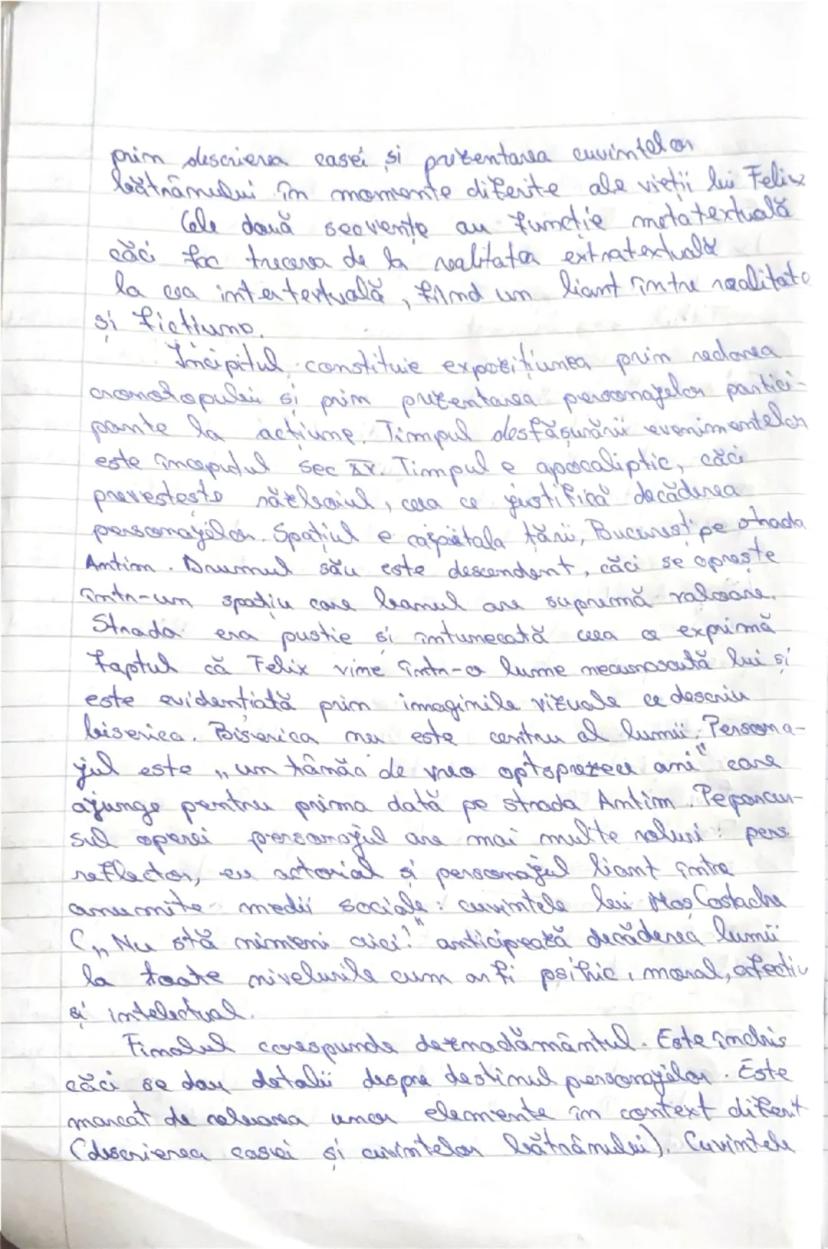 prim descrierea casei și prezentarea cuvintelor
bătrânului în momente diferite ale vieții lui Felix
Cele două secvențe au funcție metatextuală
căci fac trecerea de la realitatea extratextuală
la cea intertextuală, fiind un liant între realitate
și ficțiune.
Incipitul constituie expozițiunea prin redarea
cronotopului și prim prezentarea personajelor partici-
pante la acțiune. Timpul desfășurării evenimentelor
este începutul sec XX. Timpul e apocaliptic, căci
prevestește războiul, ceea ce justifică decăderea
personajelor. Spațiul e capitala țării, București pe strada
Antim. Drumul său este descendent, căci se oprește
într-un spațiu care banul are supremă valoare.
Strada era pustie și întunecată ceea ce exprimă
faptul că Felix vine într-o lume necunoscută lui și
este evidențiată prin imaginile vizuale ce descriu
biserica. Biserica nu este centru al lumii. Persona-
jul este „un tânăr de vreo optsprezece ani" care
ajunge pentru prima dată pe strada Antim. Pe parcur-
sul operei personajul are mai multe roluri: pers
reflector, eu actorial și personajul liant între
anumite medii sociale: cuvintele lui Moș Costache
(„Nu stă nimeni aici!" anticipează decăderea lumii
la toate nivelurile cum ar fi psihic, moral, afectiv
și intelectual.
Finalul corespunde deznodământul. Este închis
căci se dau detalii despre destinul personajelor. Este
marcat de reluarea unor elemente în context diferit
(descrierea casei și cuvintelor bătrânului). Cuvintele